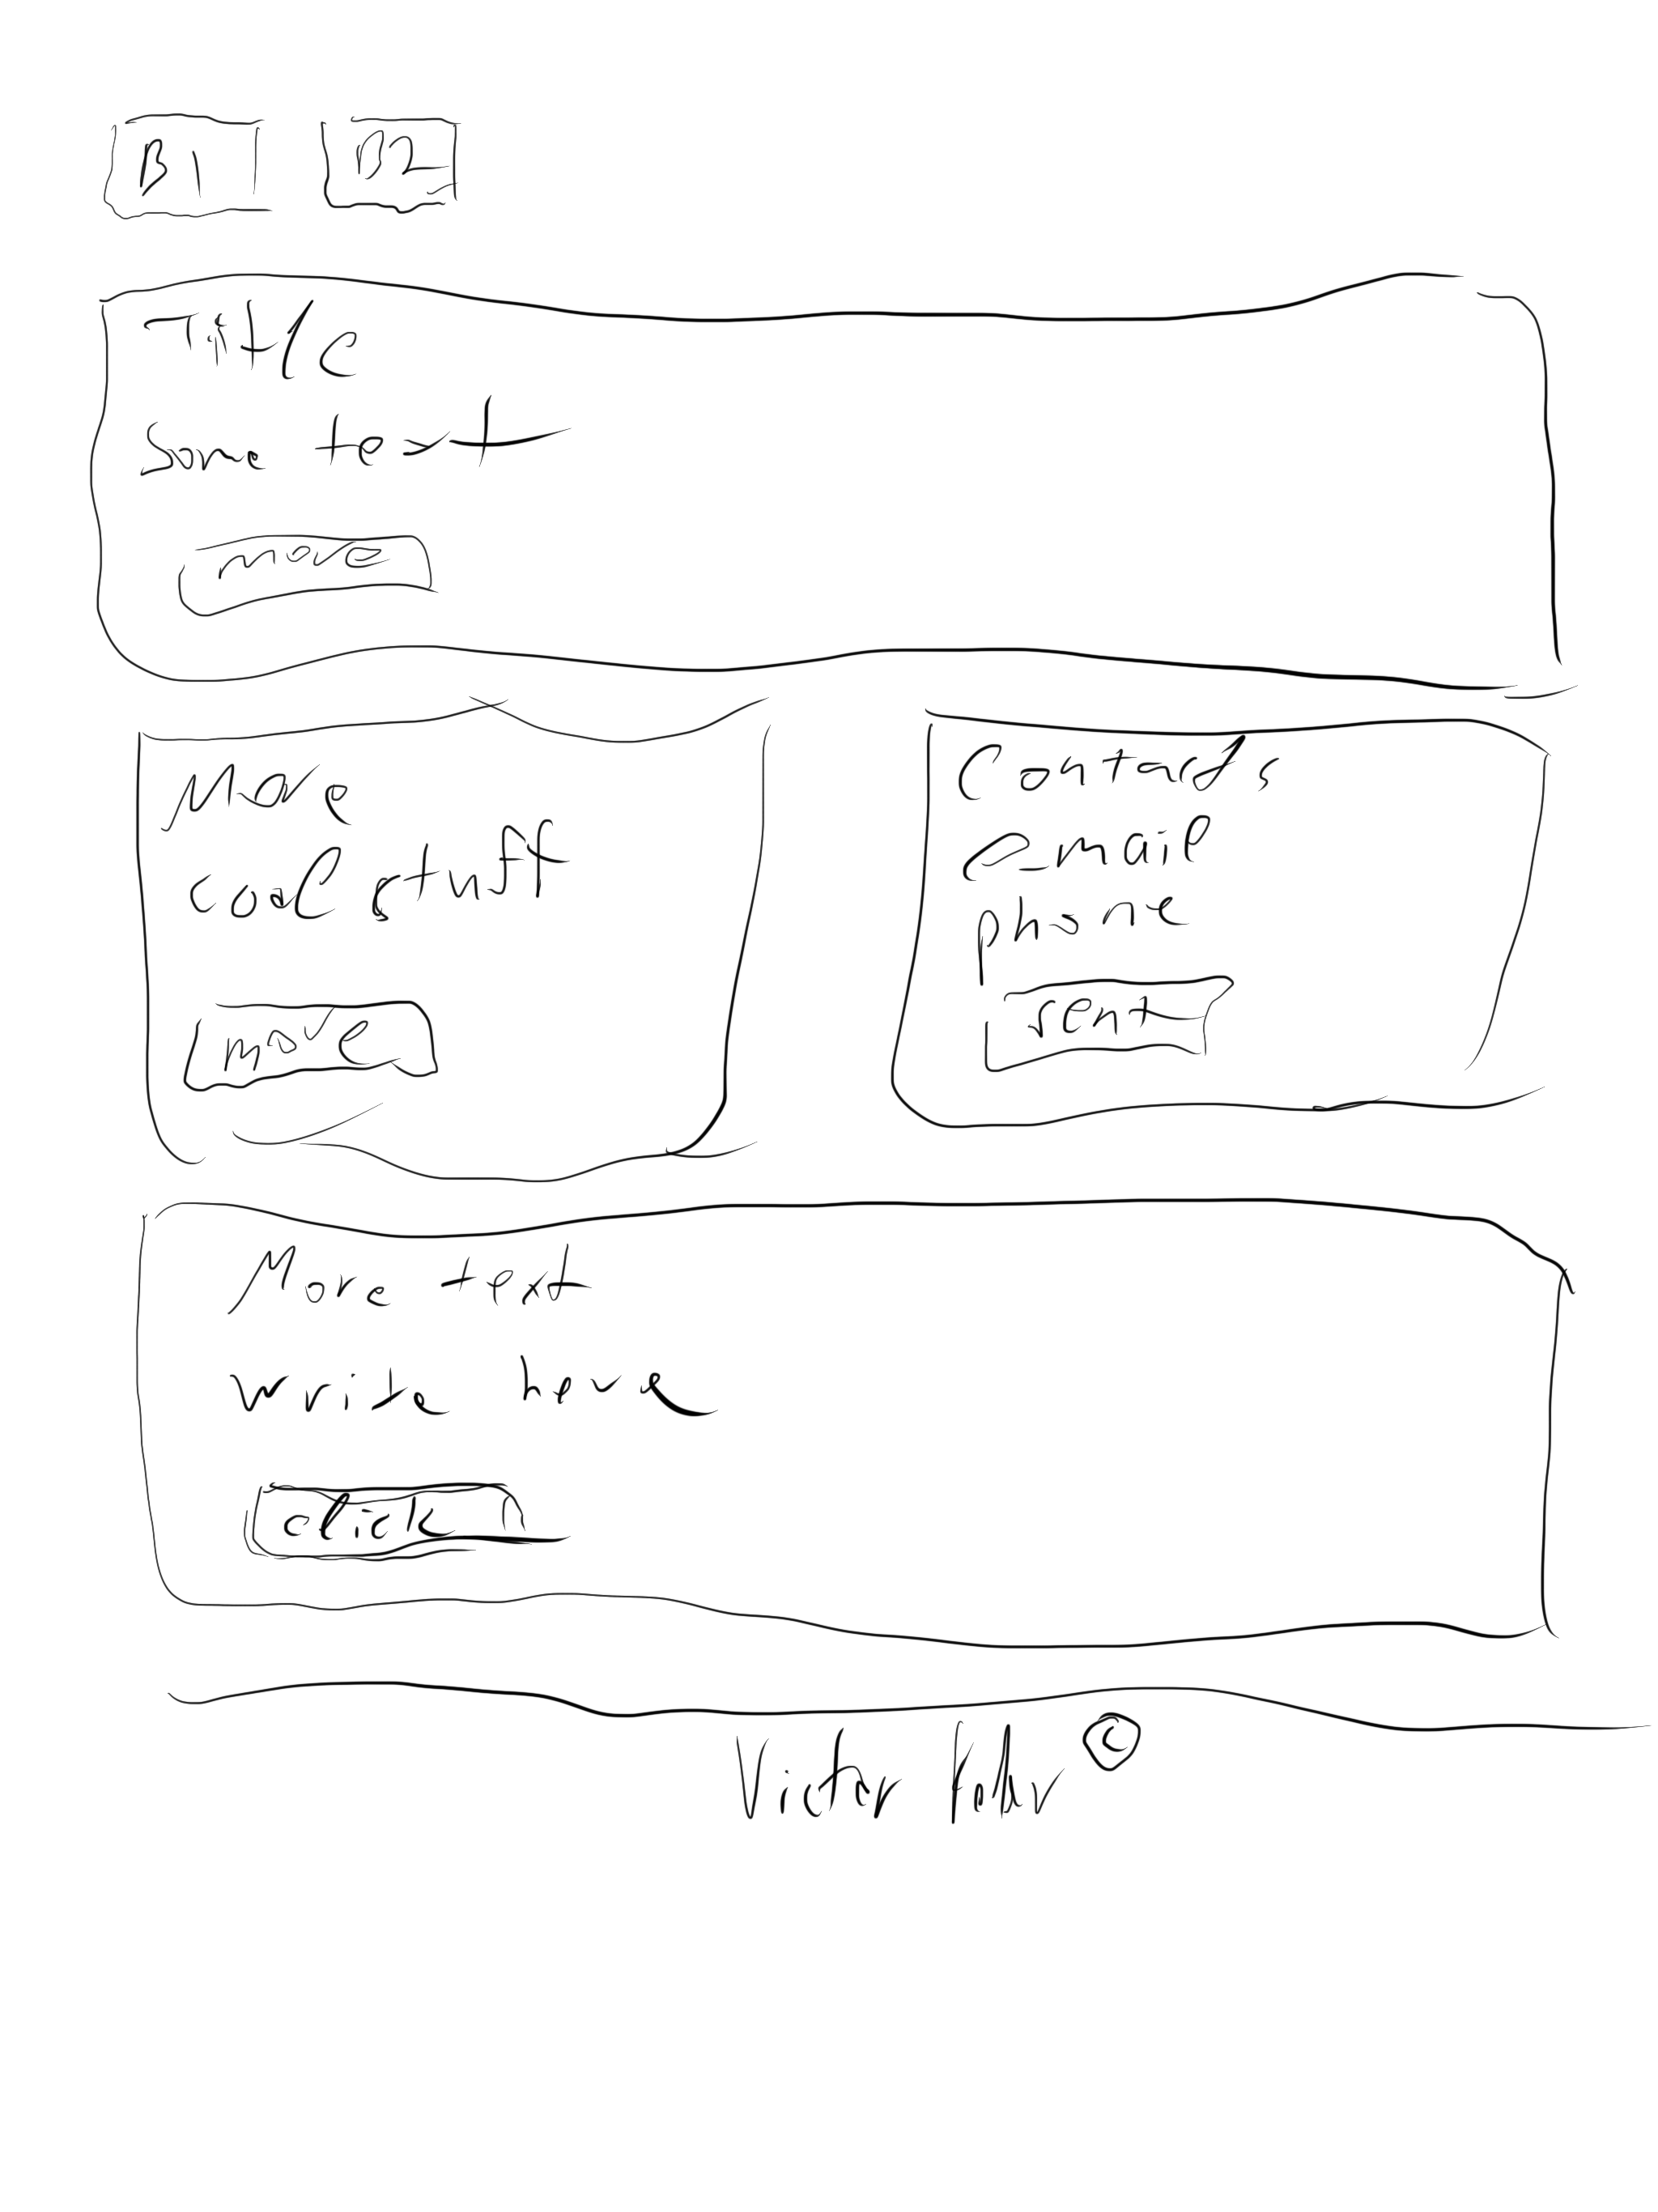 B1 B2
Title
some text
more
More
cool stuff
more
Contacts
e-mail
phone
sent
More text
write here
click
Victor ©